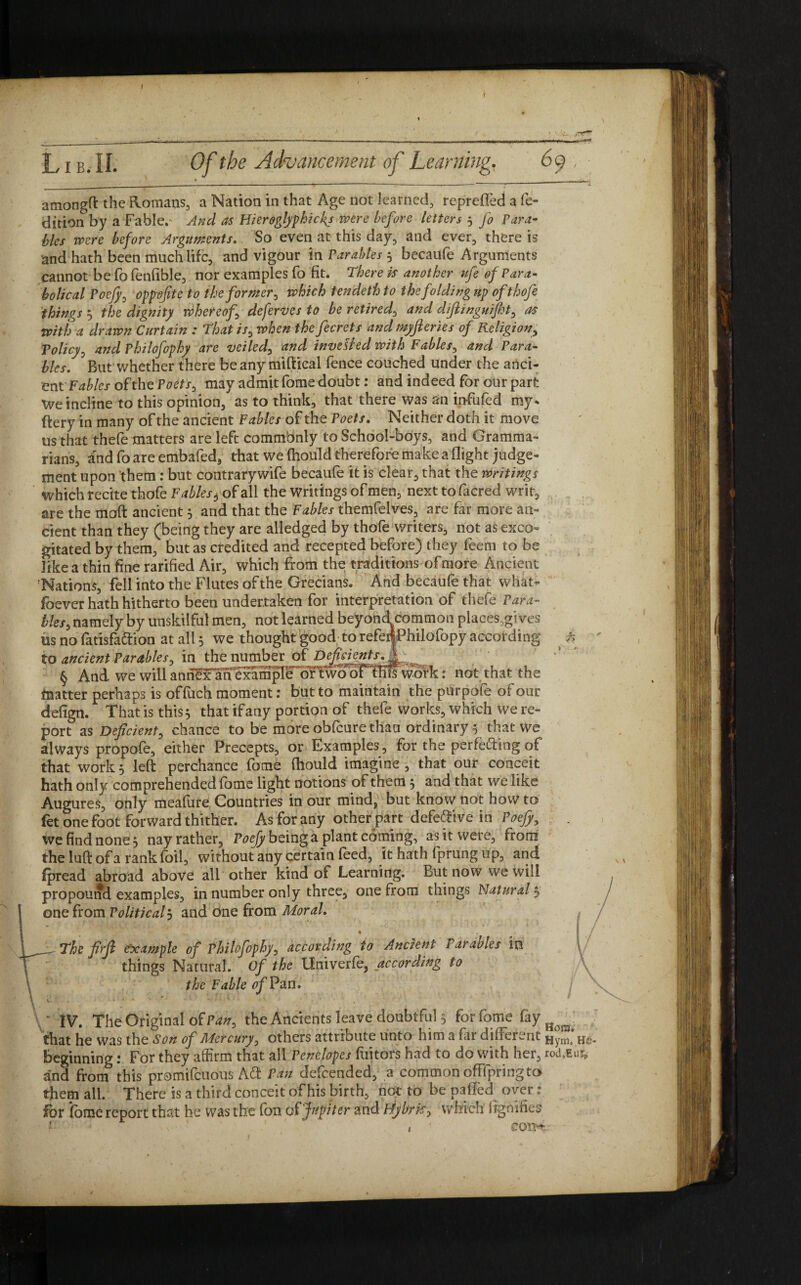 LIB.II. Of the Advancement of Learning. 69
amongſt the Romans, a Nation in that Age not learned, repreſſed a ſe-
dition by a Fable. And as Hieroglyphicks were before letters ; ſo Para-
bles were before Arguments. So even at this day, and ever, there is
and hath been much life, and vigour in Parables ; becauſe Arguments
cannot be ſo ſenſible, nor examples ſo fit. There is another uſe of Para-
bolical Poeſy, oppoſite to the former, which tendeth to the folding up of thoſe
things ; the dignity whereof, deſerves to be retired, and diſtinguiſht, as
with a drawn Curtain : That is, when the ſecrets and myſteries of Religion,
Policy, and Philoſophy are veiled, and inveſted with Fables, and Para-
bles. But whether there be any miſtical ſence couched under the anci-
ent Fables of the Poets, may admit ſome doubt : and indeed for our part
we incline to this opinion, as to think, that there was an infuſed my-
ſtery in many of the ancient Fables of the Poets. Neither doth it move
us that theſe matters are left commonly to School-boys, and Gramma-
rians, and ſo are embaſed, that we ſhould therefore make a ſlight judge-
ment upon them : but contrarywiſe becauſe it is clear, that the writings
which recite thoſe Fables, of all the writings of men, next to ſacred writ,
are the moſt ancient ; and that the Fables themſelves, are far more an-
cient than they (being they are alledged by thoſe writers, not as exco-
gitated by them, but as credited and recepted before) they ſeem to be
like a thin fine rarified Air, which from the traditions of more Ancient
Nations, fell into the Flutes of the Grecians. And becauſe that what-
ſoever hath hitherto been undertaken for interpretation of theſe Para-
bles, namely by unskilful men, not learned beyond common places, gives
us no ſatisfaction at all ; we thought good to refer Philoſopy according
to ancient Parables, in the number of Deficients.
§ And we will annex an example or two of this work : not that the
matter perhaps is of ſuch moment : but to maintain the purpoſe of our
deſign. That is this ; that if any portion of theſe works, which we re-
port as Deficient, chance to be more obſcure than ordinary ; that we
always propoſe, either Precepts, or Examples, for the perfecting of
that work ; leſt perchance ſome ſhould imagine, that our conceit
hath only comprehended ſome light notions of them ; and that we like
Augures, only meaſure Countries in our mind, but know not how to
ſet one foot forward thither. As for any other part defective in Poeſy,
we find none ; nay rather, Poeſy being a plant coming, as it were, from
the luſt of a rank ſoil, without any certain ſeed, it hath ſprung up, and
ſpread abroad above all other kind of Learning. But now we will
propound examples, in number only three, one from things Natural ;
one from Political ; and one from Moral.
The firſt example of Philoſophy, according to Ancient Parables in
things Natural. Of the Univerſe, according to
the Fable of Pan.
IV. The Original of Pan, the Ancients leave doubtful ; for ſome ſay
that he was the Son of Mercury, others attribute unto him a far different
beginning : For they affirm that all Penelopes ſuitors had to do with her,
and from this promiſcuous Act Pan deſcended, a common offſpring to
them all. There is a third conceit of his birth, not to be paſſed over :
for ſome report that he was the ſon of Jupiter and Hybris, which ſignifies
Hom.
Hym. He-
rod.Eut.
con-